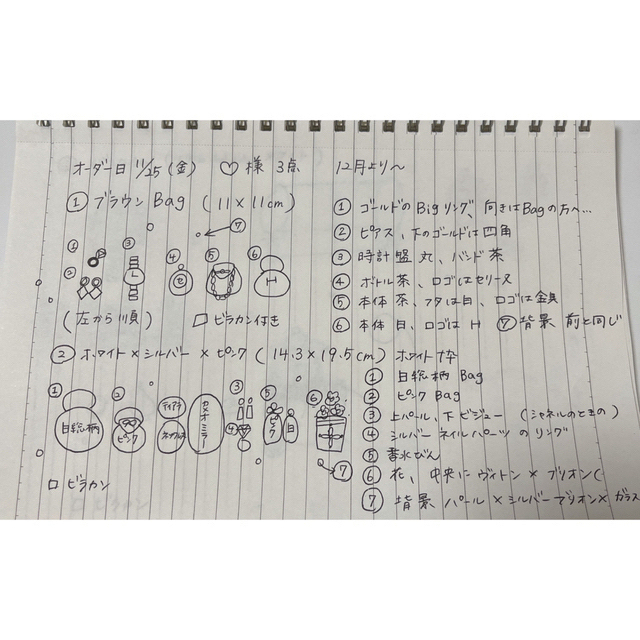 オーダー日 11/25 (金) ♡様 3点 12月より〜
① ブラウン Bag (11×11cm)
⑦
① ③ ④ ⑤ ⑥
②
L セ H
(左から順) □ ビラカン付き
① ゴールドのBigリング、向きはBagの方へ…
② ピアス、下のゴールドは四角
③ 時計盤丸、バンド茶
④ ボトル茶、ロゴはセリーヌ
⑤ 本体茶、フタは白、ロゴは金具
⑥ 本体白、ロゴは H ⑦ 背景 前と同じ
② ホワイト×シルバー×ピンク (14.3×19.5cm) ホワイト枠
① ② ③ ⑤ ⑥
白総柄 ピンク ティアラ ネックレス カメオミラー ④ ピンク 白
⑦
□ ビラカン
① 白総柄 Bag
② ピンク Bag
③ 上パール、下ビジュー (シャネルのときの)
④ シルバーネイルパーツのリング
⑤ 香水びん
⑥ 花、中央にヴィトン×ブリオン(
⑦ 背景 パール×シルバーブリオン×ガラス